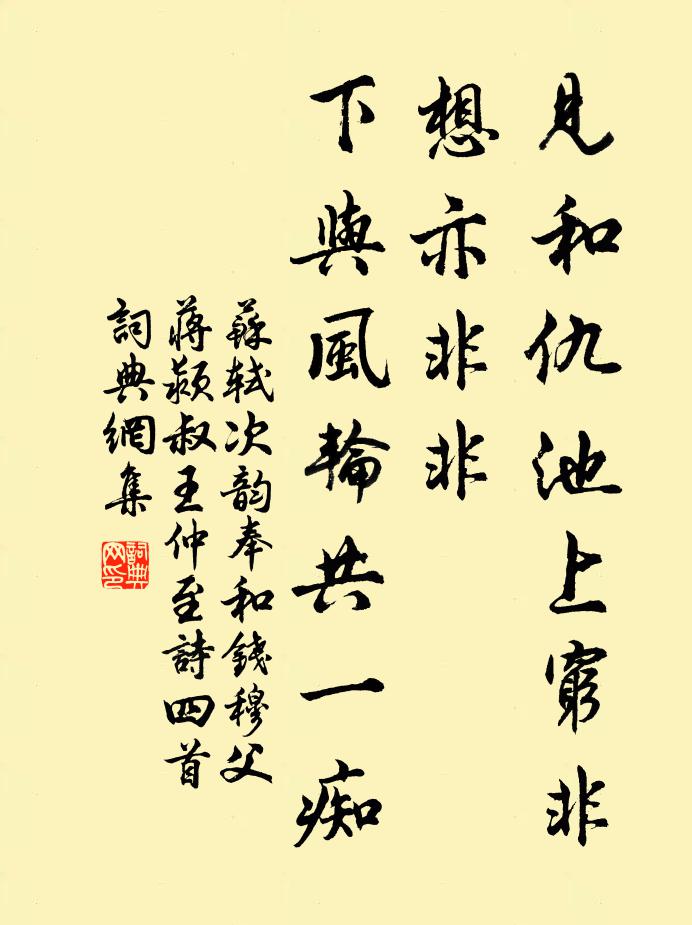 見和仇池上窮非
想亦非非
下與風輪共一痴
蘇軾次韵奉和錢穆父
蔣潁叔王仲至詩四首
詞典網集
詞典网印